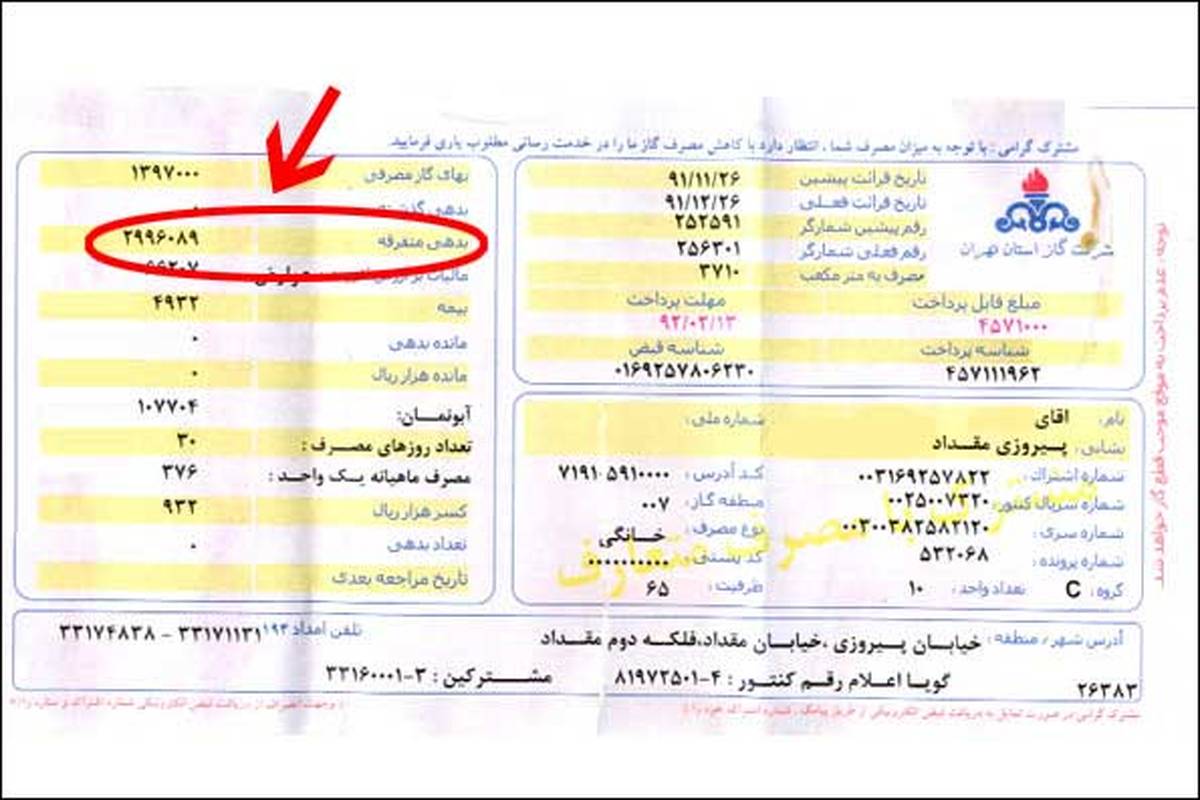 مشترک گرامی : با توجه به میزان مصرف شما ، انتظار دارد با کاهش مصرف گاز ما را در خدمت رسانی مطلوب یاری فرمایید.
شرکت گاز استان تهران
تاریخ قرائت پیشین ۹۱/۱۱/۲۶
تاریخ قرائت فعلی ۹۱/۱۲/۲۶
رقم پیشین شمارگر ۲۵۲۵۹۱
رقم فعلی شمارگر ۲۵۶۳۰۱
مصرف به متر مکعب ۳۷۱۰
مبلغ قابل پرداخت مهلت پرداخت
۴۵۷۱۰۰۰ ۹۲/۰۲/۱۳
شناسه پرداخت شناسه قبض
۴۵۷۱۱۱۹۶۲ ۰۱۶۹۲۵۷۸۰۶۲۳۰
نام: اقای شماره ملی:
نشانی: پیروزی مقداد
شماره اشتراک: ۰۰۳۱۶۹۲۵۷۸۲۲ کد آدرس: ۷۱۹۱۰۵۹۱۰۰۰۰
شماره سریال کنتور: ۰۰۲۵۰۰۷۳۲۰ منطقه گاز: ۰۰۷
شماره سری: ۰۰۳۰۰۳۸۲۵۸۲۱۲۰ نوع مصرف: خانگی
شماره پرونده: ۵۳۲۰۶۸ کد پستی: ۰۰۰۰۰۰۰۰۰۰
گروه: C تعداد واحد: ۱۰ ظرفیت: ۶۵
بهای گاز مصرفی ۱۳۹۷۰۰۰
بدهی ۰
بدهی متفرقه ۲۹۹۶۰۸۹
مالیات بر
بیمه ۴۹۳۲
مانده بدهی ۰
مانده هزار ریال ۰
آبونمان: ۱۰۷۷۰۴
تعداد روزهای مصرف : ۳۰
مصرف ماهیانه یک واحد : ۳۷۶
کسر هزار ریال ۹۳۲
تعداد بدهی ۰
تاریخ مراجعه بعدی
آدرس شهر / منطقه : خیابان پیروزی ،خیابان مقداد،فلکه دوم مقداد تلفن امداد ۱۹۴ ۳۳۱۷۱۱۳۱ - ۳۳۱۷۴۸۳۸
۲۶۳۸۳ گویا اعلام رقم کنتور : ۴-۸۱۹۷۲۵۰۱ مشترکین : ۳-۳۳۱۶۰۰۰۱